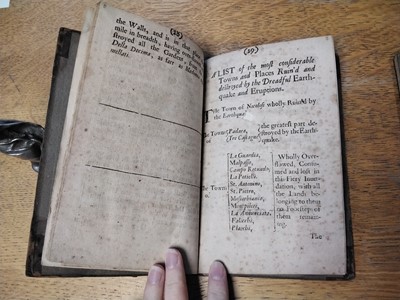 (28)
the Walls, and is in that place a
mile in breadth, having
stroyed all the Gardens, from
Della Decima, as far as
(29)
A LIST of the most considerable
Towns and Places Ruin'd and
destroyed by the Dreadful Earth-
quake and Eruptions.
The Town of Nicolosi wholly Ruin'd by
the Earthquake
The Towns Padara, Tre Castagne, the greatest part de-
stroyed by the Earth-
quake.
The Towns
La Guardia,
Malpasso,
Campo Rotundo,
La Potielli,
St. Antonino,
St. Pietro,
Mosterbianco,
Montpilleri,
La Annunciata,
Falicchi,
Placchi,
Wholly Over-
flowed, Consu-
med and lost in
this Fiery Inun-
dation, with all
the Lands be-
longing to them
of
them remain-
ing.
The